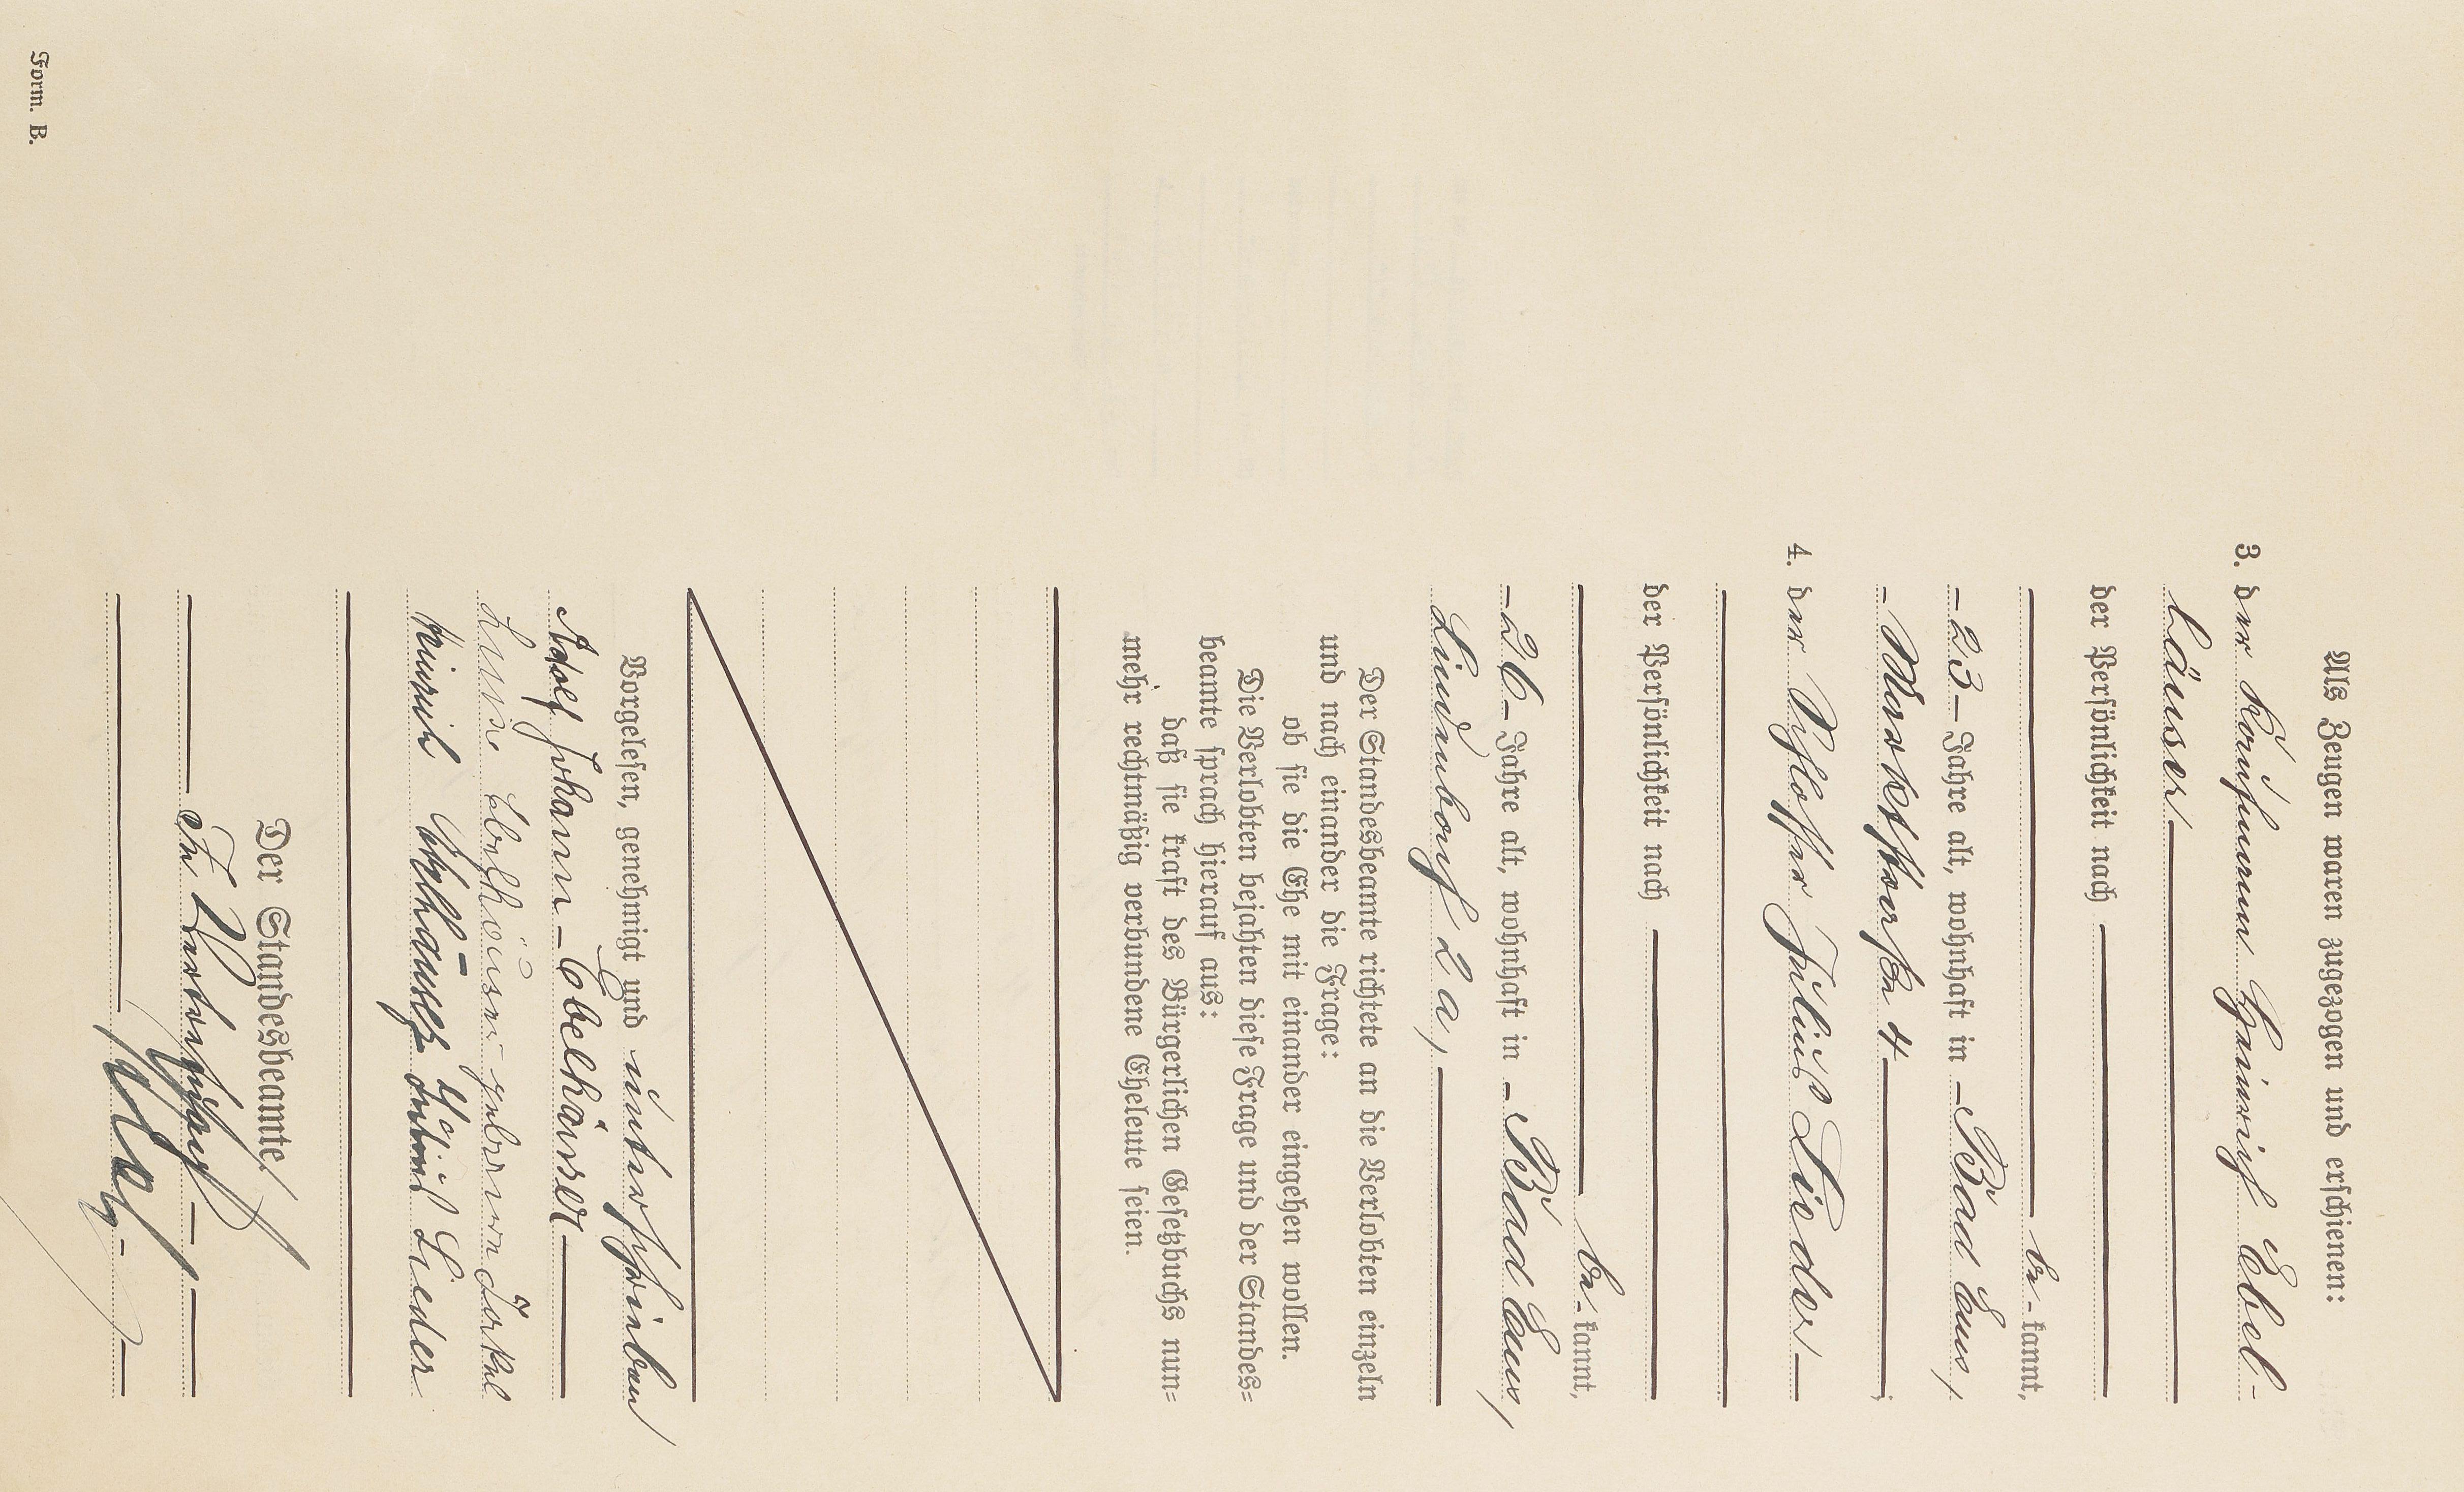 Als Zeugen waren zugezogen und erschienen:
3. der Kaufmann Heinrich Ebel-
häuser
der Persönlichkeit nach
be-kannt,
- 23 - Jahre alt, wohnhaft in - Bad Ems,
- Marktstraße 4
4. der Schlosser Julius Lieder -
der Persönlichkeit nach
be-kannt,
- 26 - Jahre alt, wohnhaft in - Bad Ems,
Lindenbach 2a,
Der Standesbeamte richtete an die Verlobten einzeln
und nach einander die Frage:
ob sie die Ehe mit einander eingehen wollen.
Die Verlobten bejahten diese Frage und der Standes=
beamte sprach hierauf aus:
daß sie kraft des Bürgerlichen Gesetzbuchs nun=
mehr rechtmäßig verbundene Eheleute seien.
Vorgelesen, genehmigt und unterschrieben
Adolf Johann - Ebelhäuser
Ebelhäuser geborene
Heinrich Ebelhäuser Julius Lieder
Der Standesbeamte.
In Vertretung
Form. B.